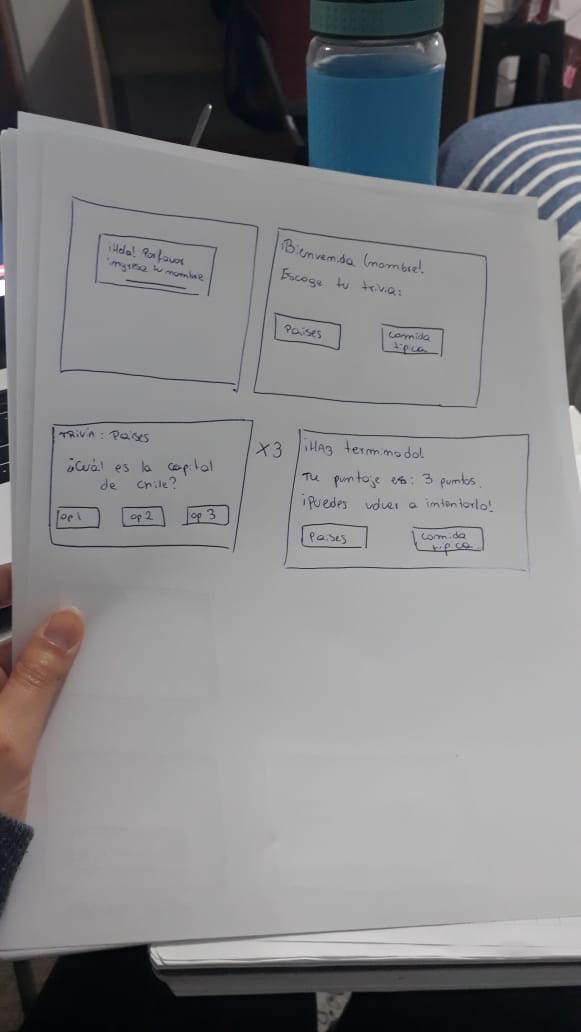 ¡Hola! Porfavor
ingrese tu nombre
¡Bienvenida (nombre!.
Escoge tu trivia:
Paises
comida
típica
TRIVIA: Paises
¿Cuál es la capital
de chile?
op 1
op 2
op 3
x3
¡HAS terminado!
Tu puntaje es: 3 puntos.
¡Puedes volver a intentarlo!
Paises
comida
típica